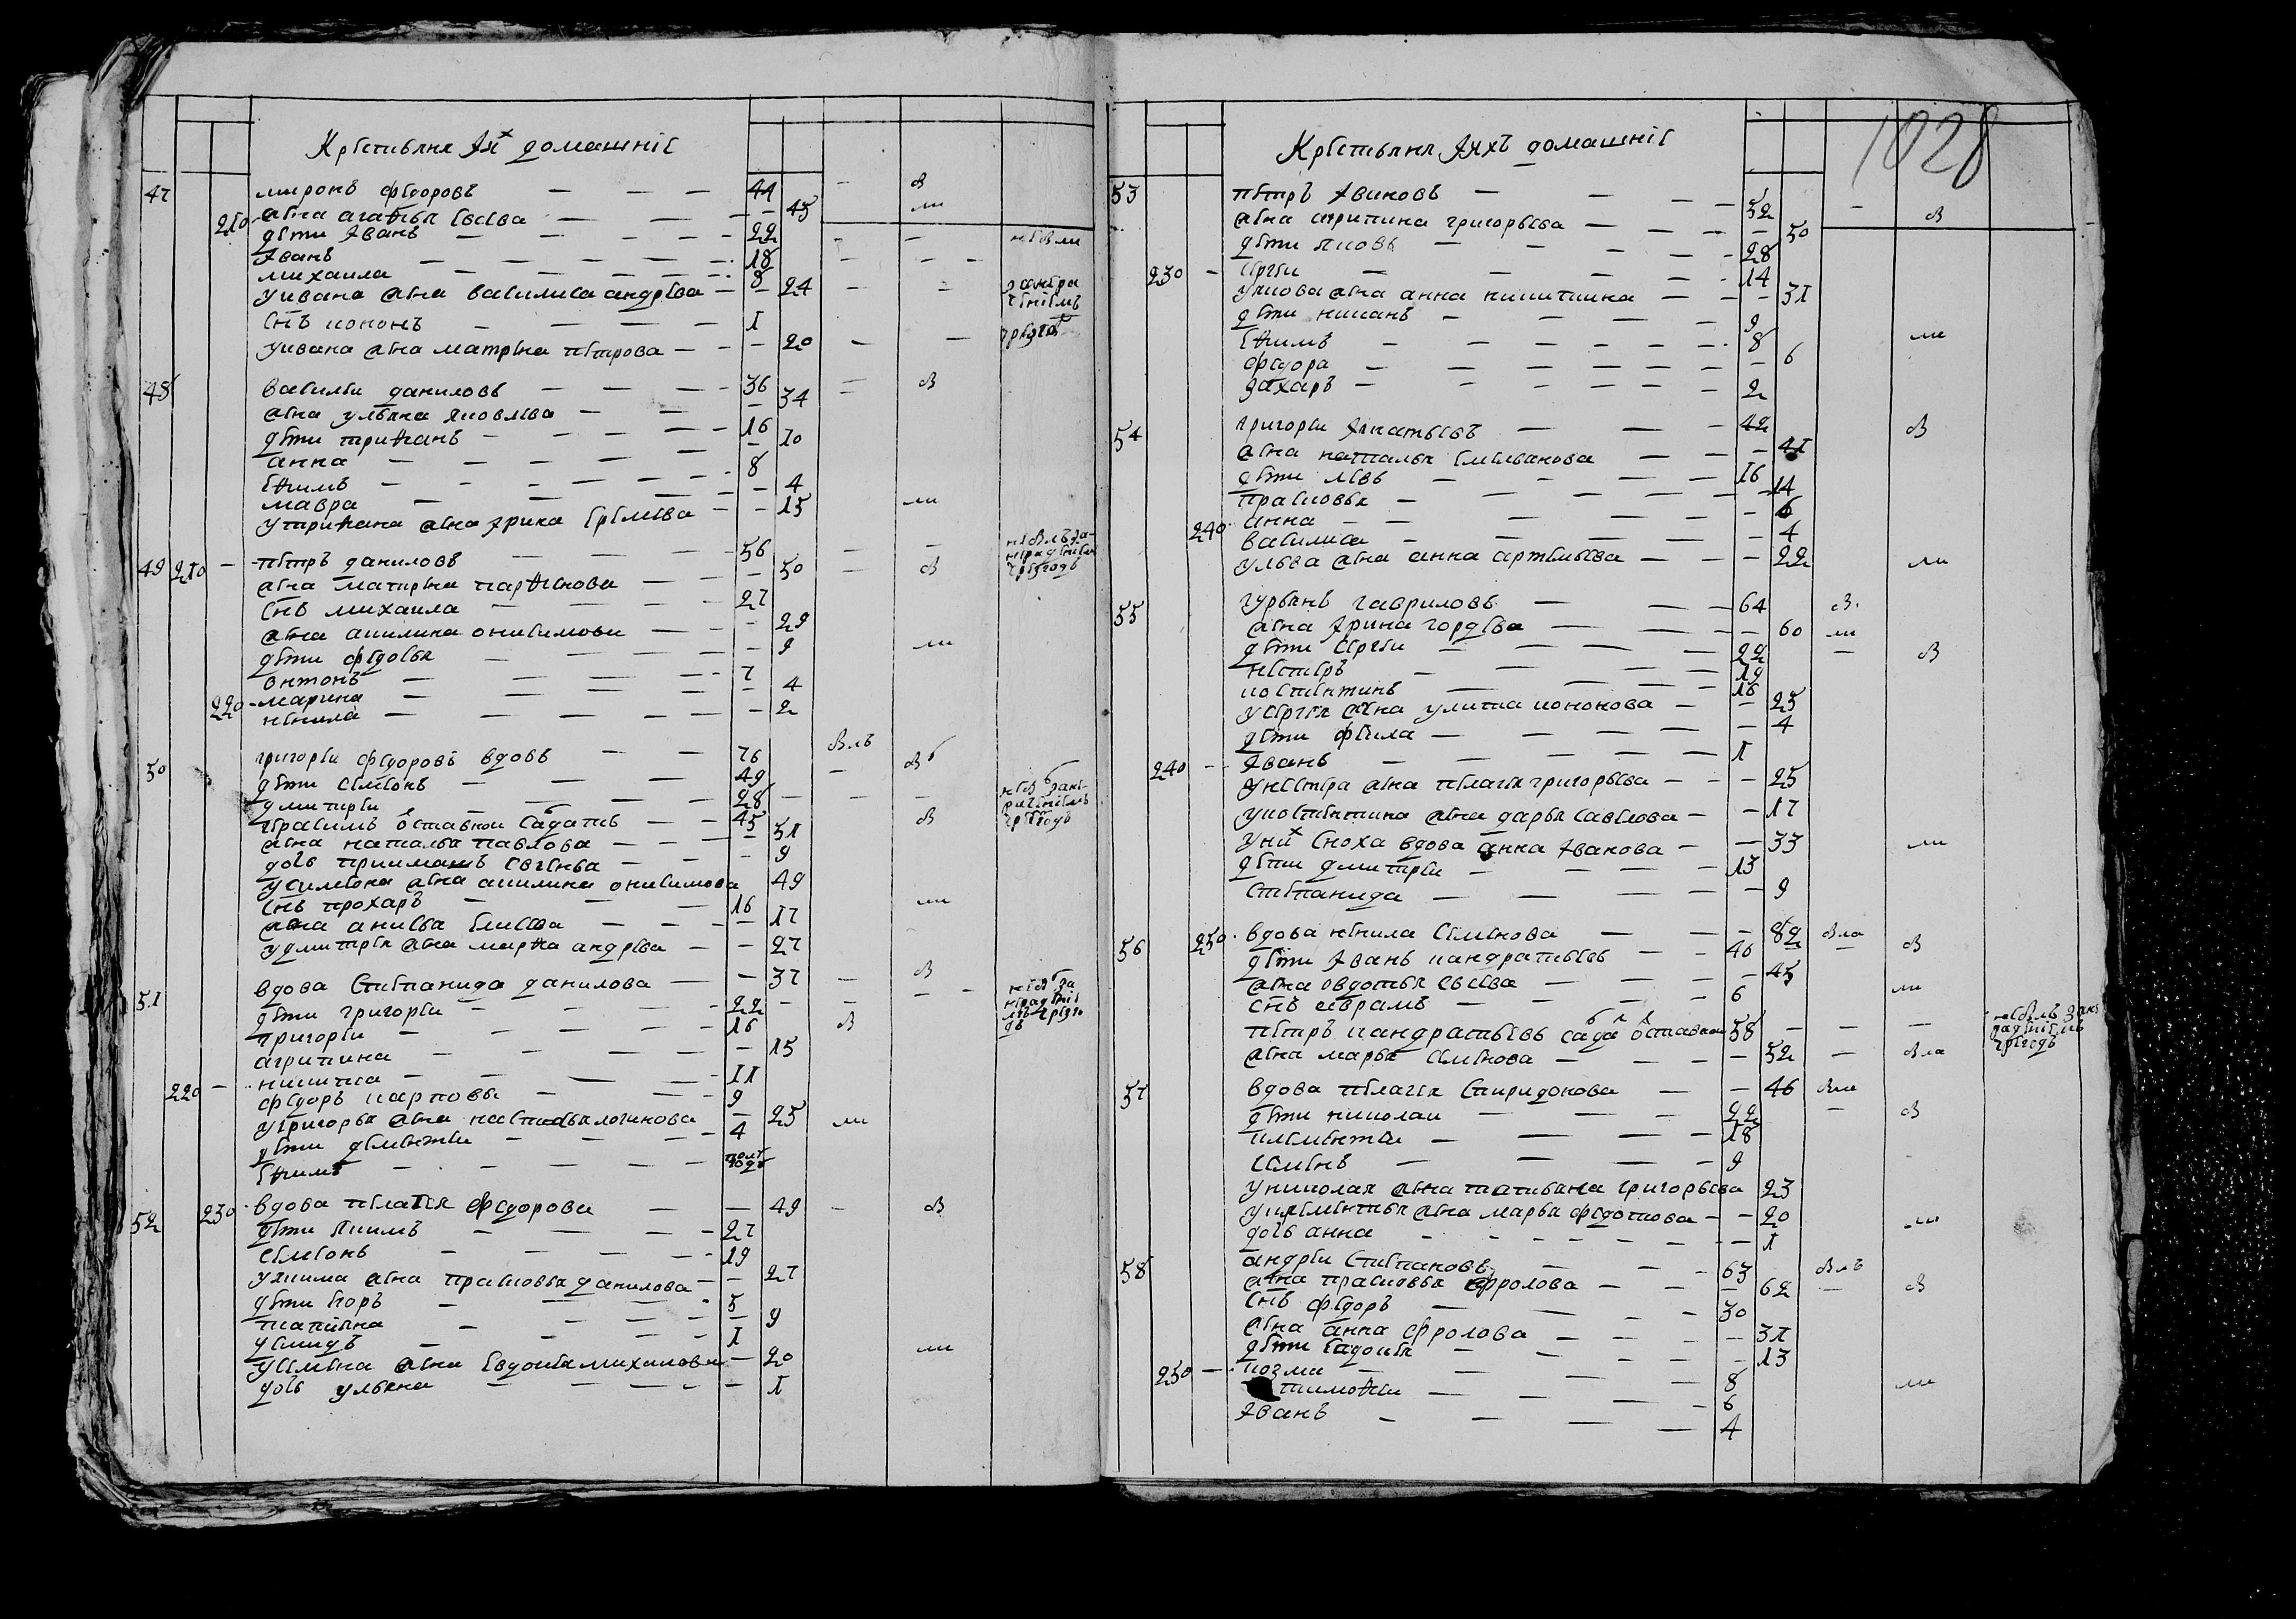 Крестьяня Ихъ домашние
47 миронъ федоровъ 44 в
210 жена агафья евсева 45 ли
дети Иванъ 22 небыли
Иванъ 18
михаила 8
у ивана жена василиса андрева 24
снъ кононъ 1
у ивана жена матрена петрова 20
48 василеи даниловъ 36 в
жена ульяна яковлева 34
дети трифанъ 16
анна 10
ефимъ 8
мавра 4
у трифана жена Ирина еремева 15 ли
49 210 петръ даниловъ 56
жена матрена парфенова 50 в
снъ михаила 27
жена акилина онисимова 29
дети федосья 9 ли
антонъ 7
220 марина 4
ненила 2
50 григореи федоровъ вдовъ 76 влъ
дети семионъ 49 в
дмитреи 28
герасимъ оставнои салдатъ 45 в
жена наталья павлова 51
дочь приимашъ евгенья 9
у симиона жена акилина онисимова 49
снъ прохаръ 16 ли
жена анисья елисева 17
у дмитрея жена марфа андрева 27
51 вдова степанида данилова 37 в
дети григореи 22
григореи 16 в
агрипина 15
220 никитка 11
федоръ карповы 9
у григорья жена настасья логинова 23 ли
дети дементеи 4
ефимъ полъ года
52 230 вдова пелагея федорова 49 в
дети якимъ 27
семионъ 19
у якима жена прасковья данилова 27
дети егоръ 5
татьяна 9
демидъ 1
у семена жена евдокея михаилова 20 ли
дочь ульяна 1
1028
Крестьяня Ихъ домашние
53 петръ Ивановъ 52
жена агрипина григорьева 50 в
дети яковъ 28
230 сергеи 14
у якова жена анна никитина 31
дети никанъ 9
ефимъ 8 ли
федора 6
захаръ 2
54 григореи Игнатьевъ 42 в
жена наталья емельянова 41
дети левъ 16
прасковья 14
анна 6
240 василиса 4
у льва жена анна артемьева 22 ли
55 гурьянъ гавриловъ 64 в
жена Ирина гордева 60 ли
дети сергеи 22 в
нестеръ 19
костентинъ 16
у сергея жена улитка кононова 25
дети фекла 4
240 Иванъ 1
у нестера жена пелагея григорьева 25
у костентина жена дарья савелова 17
у них сноха вдова анна Иванова 33 ли
дети дмитреи 13
степанида 9
56 250 вдова ненила семенова 82 вла
дети Иванъ кандратьевъ 46 в
жена овдотья евсева 45
снъ аврамъ 6 ли
петръ кандратьевъ салда оставнои 58
жена марья семенова 52 вла
57 вдова пелагея спиридонова 46 вла
дети николаи 22 в
клементеи 18
семенъ 9
у николая жена татьяна григорьева 23
у клементья жена марья федотова 20
дочь анна 1 ли
58 андреи степановъ 63 влъ
жена прасковья фролова 62 в
снъ федоръ 30
жена анна фролова 31
дети евдокея 13
250 козма 8
тимофеи 6 ли
Иванъ 4